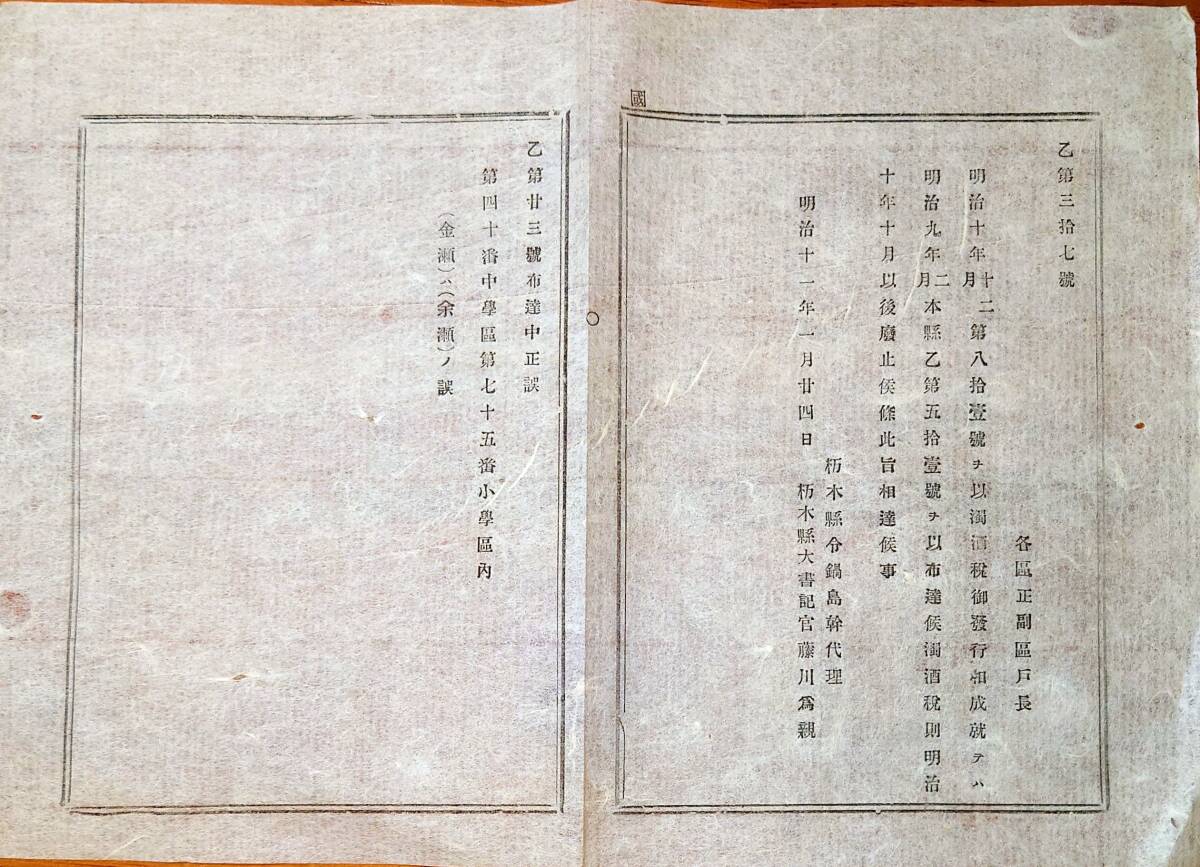 國
乙第三拾七號
各區正副區戸長
明治十年十二月第八拾壹號ヲ以濁酒稅御發行相成就テハ
明治九年二月本縣乙第五拾壹號ヲ以布達候濁酒稅則明治
十年十月以後廢止候條此旨相達候事
栃木縣令鍋島幹代理
明治十一年一月廿四日 栃木縣大書記官藤川爲親
乙第廿三號布達中正誤
第四十番中學區第七十五番小學區內
(金瀬)ハ(余瀬)ノ誤